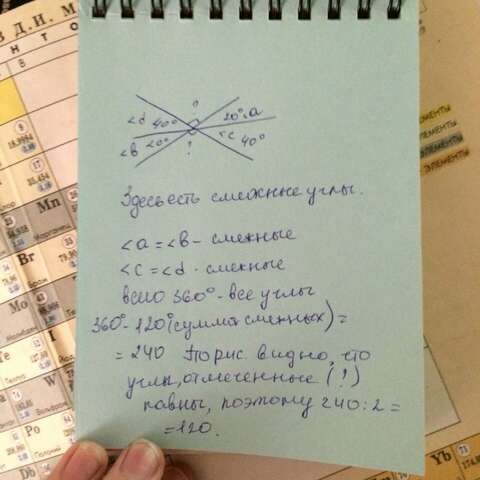 З Д.И. М
∠d 40° 20° ∠a
∠b 20° ∠c 40°
!
Здесь есть смежные углы.
∠a = ∠b - смежные
∠c = ∠d - смежные
всего 360° - все углы
360° - 120° (сумма смежных) =
= 240 По рис. видно, что
углы, отмеченные (!)
равны, поэтому 240:2 =
=120.
Mn
Br
Mo
Po
Db
Yb
ЭЛЕМЕНТЫ
ЭЛЕМЕНТЫ
ЭЛЕМЕНТЫ